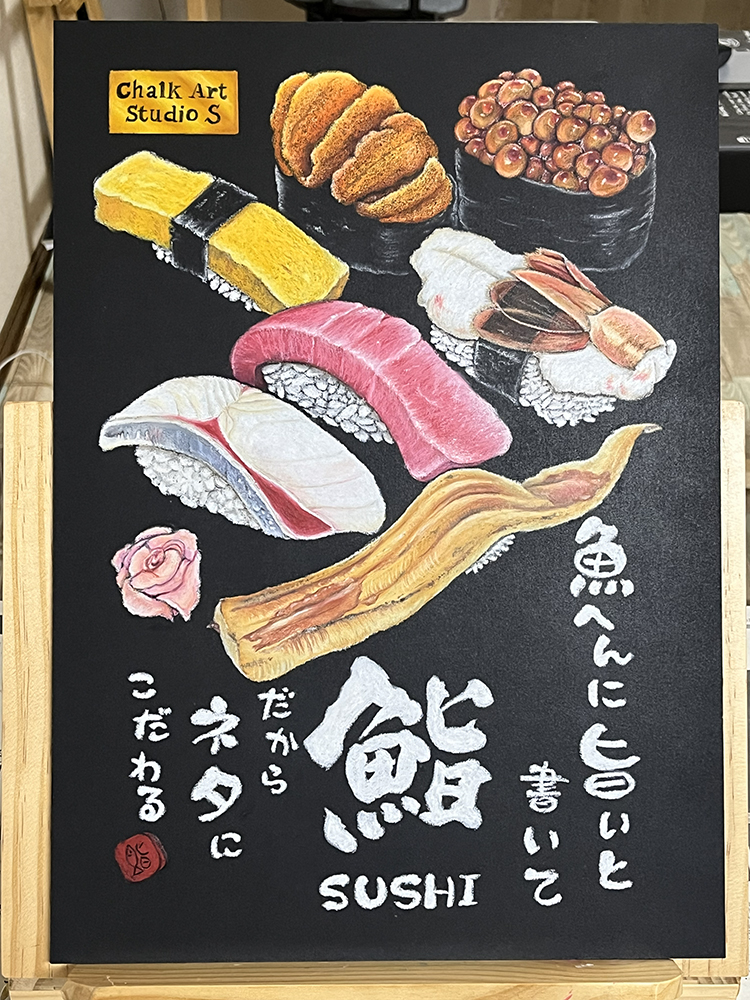 Chalk Art
Studio S
魚へんに旨いと
書いて
鮨
SUSHI
だから
ネタに
こだわる